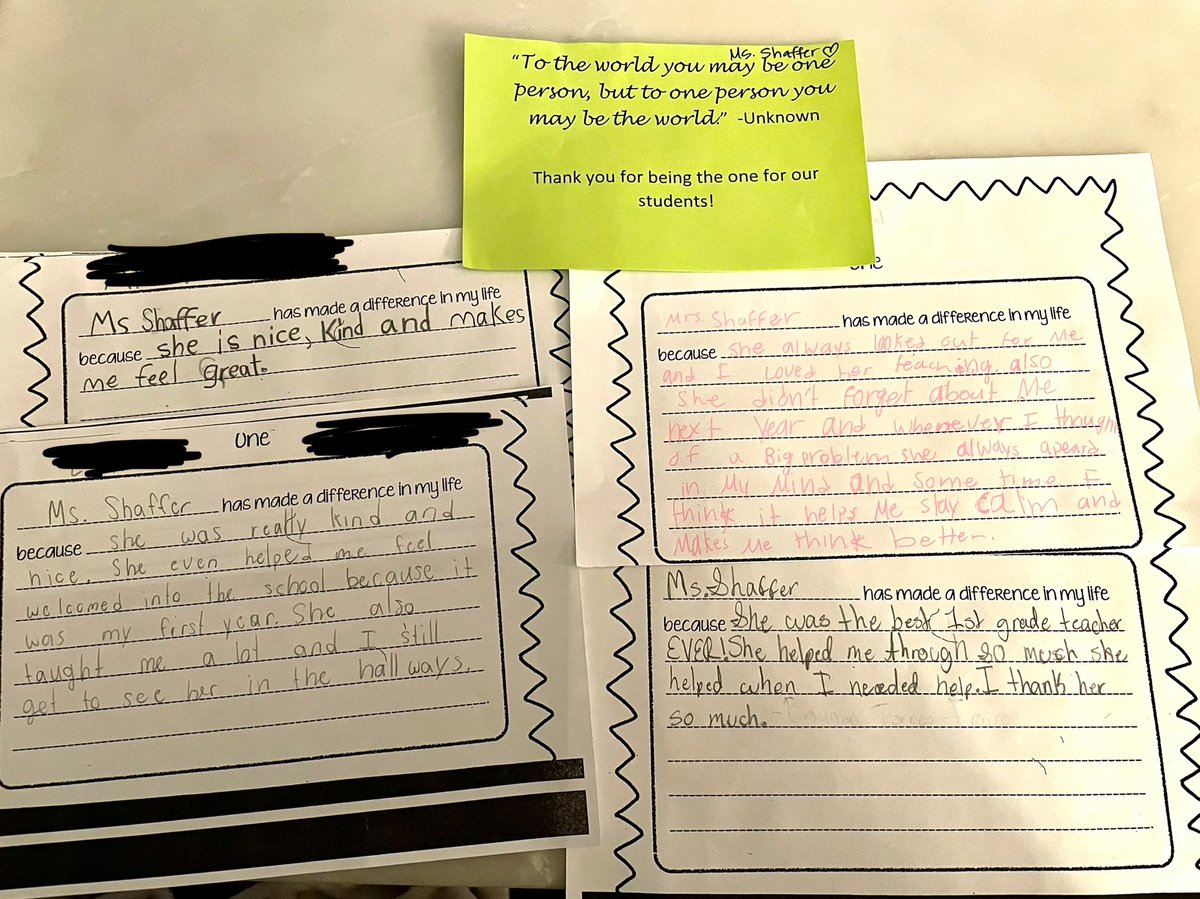 Ms. Shaffer♡
"To the world you may be one
person, but to one person you
may be the world." -Unknown
Thank you for being the one for our
students!
Ms Shaffer has made a difference in my life
because she is nice, Kind and makes
me feel Great.
One
Ms. Shaffer has made a difference in my life
because she was really kind and
nice. She even helped me feel
welcomed into the school because it
was my first year. She also
taught me a lot and I still
get to see her in the hallways.
One
Mrs. Shaffer has made a difference in my life
because She always looked out for Me
and I loved her teaching, also
She didn't forget about Me
next Year and whenever I though
of a Big problem she always apeard
in My Mind and Some time I
think it helps Me stay calm and
Makes Me think better.
Ms. Shaffer has made a difference in my life
because She was the best 1st grade teacher
EVER! She helped me through so much she
helped when I needed help. I thank her
so much.